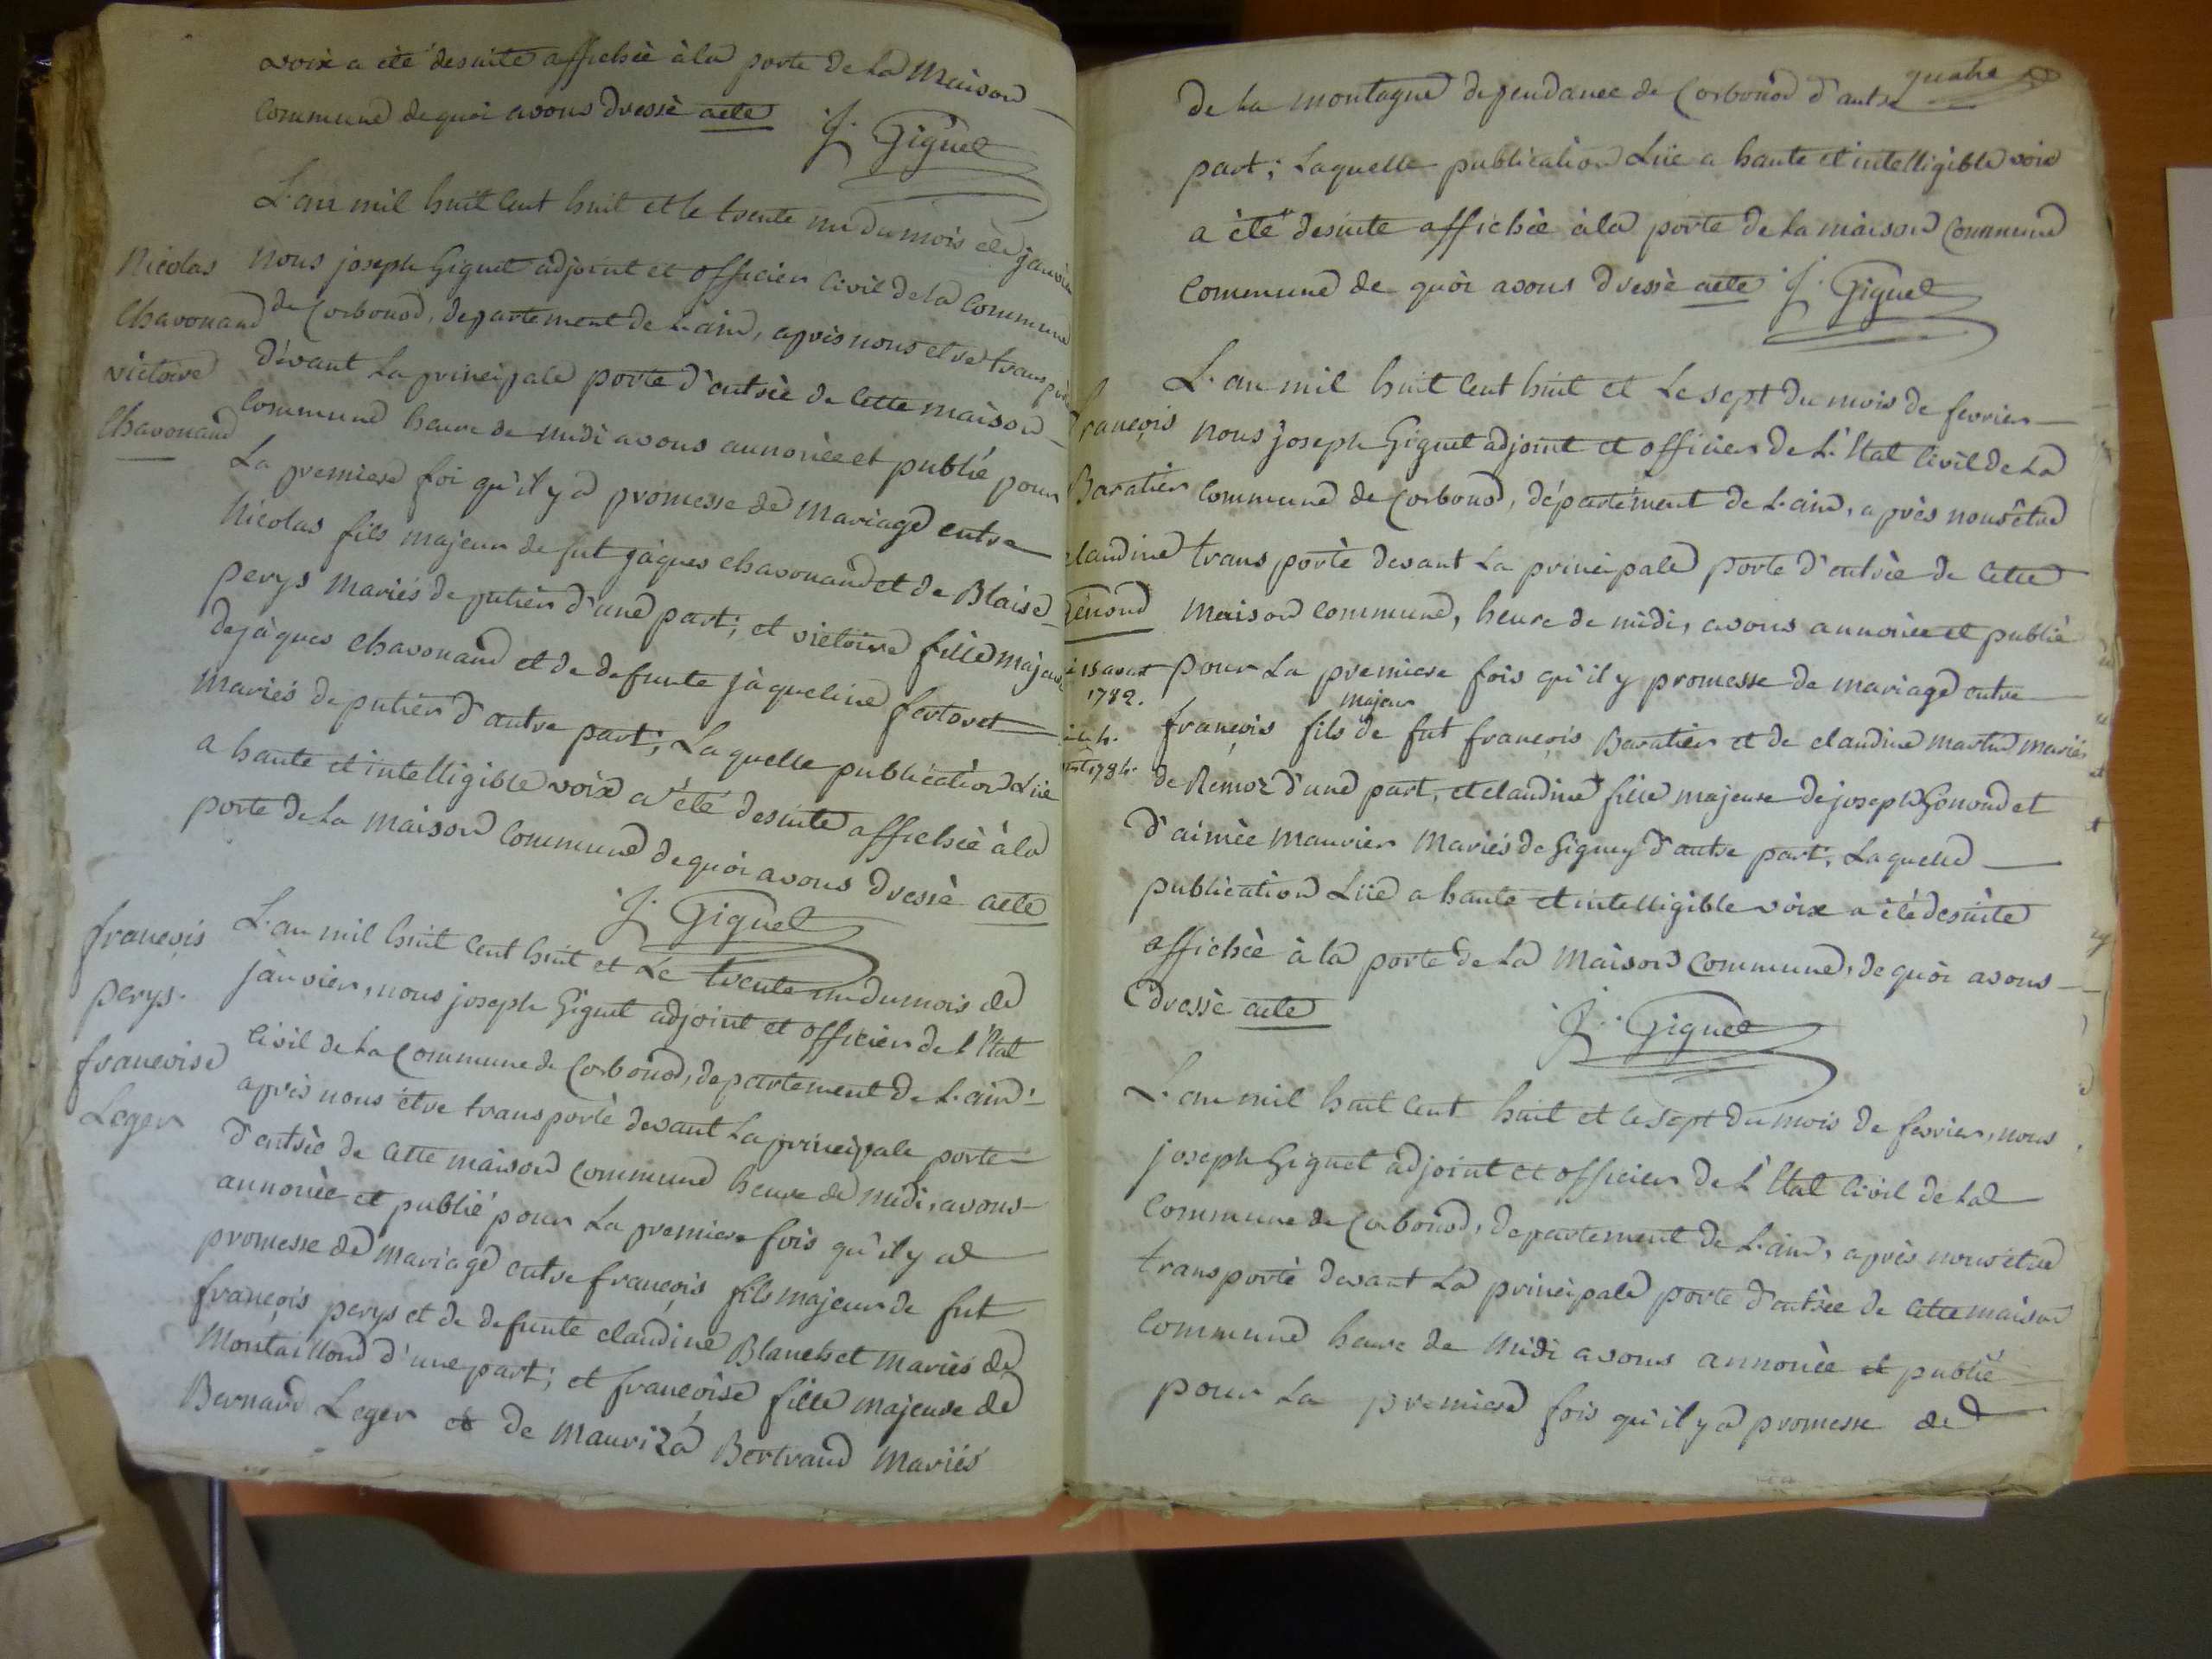 voix a été desuite affichéè à la porte de la maison
commune de quoi avons dressè acte
J. Giguet
L'an mil huit cent huit et le trente un du mois de janvier
nous joseph Giguet adjoint et officier civil de la commune
de Corbonod, departement de L'ain, aprés nous etre transporté
dévant La principale porte d'entréè de cette maison
commune heure de midi avons annoncèe et publié pour
La premiere foi qu'il y a promesse de mariage entre
Nicolas fils majeur de fut jàques chavouand et de Blaise
perys mariés de putier d'une part; et victoire fille majeure
de jàques chavouand et de defunte jàqueline fertoret
mariés de putier d'autre part; Laquelle publication Lüe
a haute et intelligible voix a été desuite affichéè à la
porte de La maison commune de quoi avons dressè acte
J. Giguet
Nicolas
Chavouand
victoire
Chavouand
L'an mil huit cent huit et Le trente un du mois de
jànvier, nous joseph Giguet adjoint et officier de l'Etat
civil de La commune de Corbonod, departement de L'ain
aprés nous étre transportè devant La principale porte
d'entréè de cette maison commune heure de midi, avons
annoncèe et publié pour La premiere fois qu'il y a
promesse de mariage entre françois fils majeur de fut
françois perys et de defunte claudine Blanchet mariés de
Montaillond d'une part; et francoise fille majeure de
Bernard Leger et de mauriza Bertrand mariés
françois
perys.
francoise
Leger
quatre
de La montagne dependance de Corbonod d'autre
part; Laquelle publication Lüe a haute et intelligible voix
a été desuite affichèe à la porte de La maison Commune
commune de quoi avons dressè acte J. Giguet
L'an mil huit cent huit et Le sept du mois de fevrier
nous joseph Giguet adjoint et officier de L'Etat civil de La
commune de Corbonod, département de L'ain, aprés nous étre
transportè devant La principale porte d'entrèe de cette
maison commune, heure de midi, avons annoncèe et publiè
pour La premiere fois qu'il y promesse de mariage entre
majeur
françois fils de fut françois Baratier et de claudine martin mariés
de Remoz d'une part, et claudine fille majeure de joseph Gonond et
d'aimèe maurier mariés de Gigney d'autre part, Laquelle
publication Lüe a haute et intelligible voix a été desuite
affichèe à la porte de La maison commune, de quoi avons
dressè acte
J. Giguet
francois
Baratier
claudine
1782.
1784.
L'an mil huit cent huit et le sept du mois de fevrier, nous
joseph Giguet adjoint et officier de L'Etat civil de La
commune de Corbonod, departement de L'ain, aprés nous étre
transportè devant La principale porte d'entrèe de cette maison
commune heure de midi avons annoncèe et publiè
pour La premiere fois qu'il y a promesse de